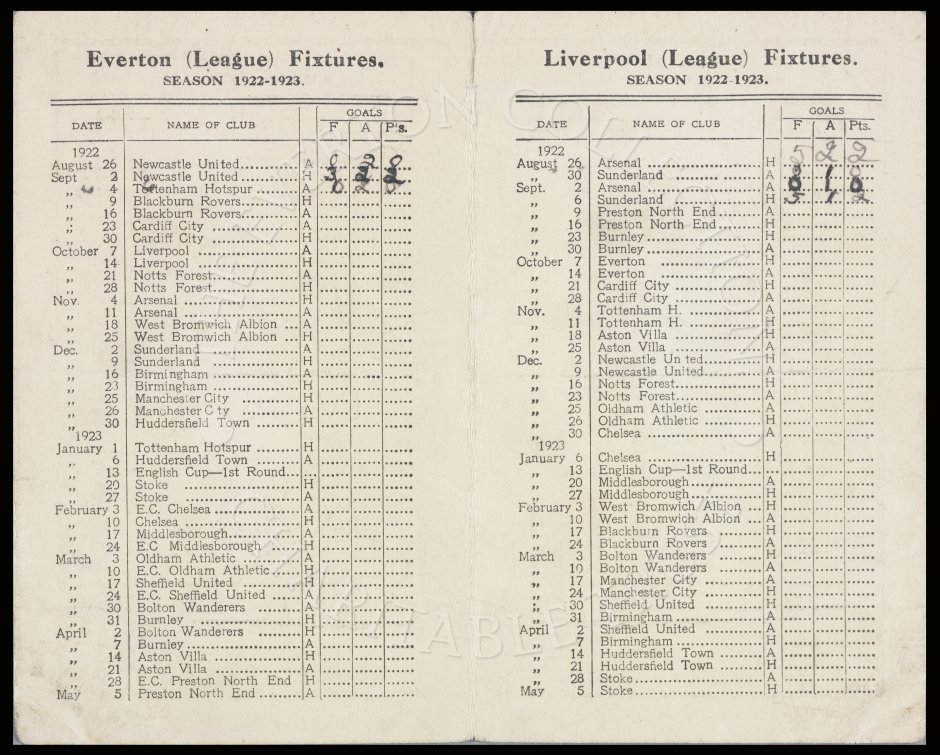 Everton (League) Fixtures.
SEASON 1922-1923.
DATE NAME OF CLUB GOALS
F A Pts.
1922
August 26 Newcastle United A 0 2 0
Sept 2 Newcastle United H 3 2 2
„ 4 Tottenham Hotspur A 0 2 0
„ 9 Blackburn Rovers H
„ 16 Blackburn Rovers A
„ 23 Cardiff City A
„ 30 Cardiff City H
October 7 Liverpool A
„ 14 Liverpool H
„ 21 Notts Forest A
„ 28 Notts Forest H
Nov. 4 Arsenal H
„ 11 Arsenal A
„ 18 West Bromwich Albion A
„ 25 West Bromwich Albion H
Dec. 2 Sunderland A
„ 9 Sunderland H
„ 16 Birmingham A
„ 23 Birmingham H
„ 25 Manchester City H
„ 26 Manchester C ty A
„ 30 Huddersfield Town H
1923
January 1 Tottenham Hotspur H
„ 6 Huddersfield Town A
„ 13 English Cup—1st Round
„ 20 Stoke H
„ 27 Stoke A
February 3 E.C. Chelsea A
„ 10 Chelsea H
„ 17 Middlesborough A
„ 24 E.C Middlesborough H
March 3 Oldham Athletic A
„ 10 E.C. Oldham Athletic H
„ 17 Sheffield United H
„ 24 E.C. Sheffield United A
„ 30 Bolton Wanderers A
„ 31 Burnley H
April 2 Bolton Wanderers H
„ 7 Burnley A
„ 14 Aston Villa H
„ 21 Aston Villa A
„ 28 E.C. Preston North End H
May 5 Preston North End A
Liverpool (League) Fixtures.
SEASON 1922-1923.
DATE NAME OF CLUB GOALS
F A Pts.
1922
August 26 Arsenal H 5 2 2
„ 30 Sunderland A
Sept. 2 Arsenal A 0 1 0
„ 6 Sunderland H 5 1 2
„ 9 Preston North End A
„ 16 Preston North End H
„ 23 Burnley H
„ 30 Burnley A
October 7 Everton H
„ 14 Everton A
„ 21 Cardiff City H
„ 28 Cardiff City A
Nov. 4 Tottenham H. A
„ 11 Tottenham H. H
„ 18 Aston Villa H
„ 25 Aston Villa A
Dec. 2 Newcastle Un ted H
„ 9 Newcastle United A
„ 16 Notts Forest H
„ 23 Notts Forest A
„ 25 Oldham Athletic A
„ 26 Oldham Athletic H
„ 30 Chelsea A
1923
January 6 Chelsea H
„ 13 English Cup—1st Round
„ 20 Middlesborough A
„ 27 Middlesborough H
February 3 West Bromwich Albion H
„ 10 West Bromwich Albion A
„ 17 Blackburn Rovers H
„ 24 Blackburn Rovers A
March 3 Bolton Wanderers H
„ 10 Bolton Wanderers A
„ 17 Manchester City A
„ 24 Manchester City H
„ 30 Sheffield United H
„ 31 Birmingham A
April 2 Sheffield United A
„ 7 Birmingham H
„ 14 Huddersfield Town A
„ 21 Huddersfield Town H
„ 28 Stoke A
May 5 Stoke H